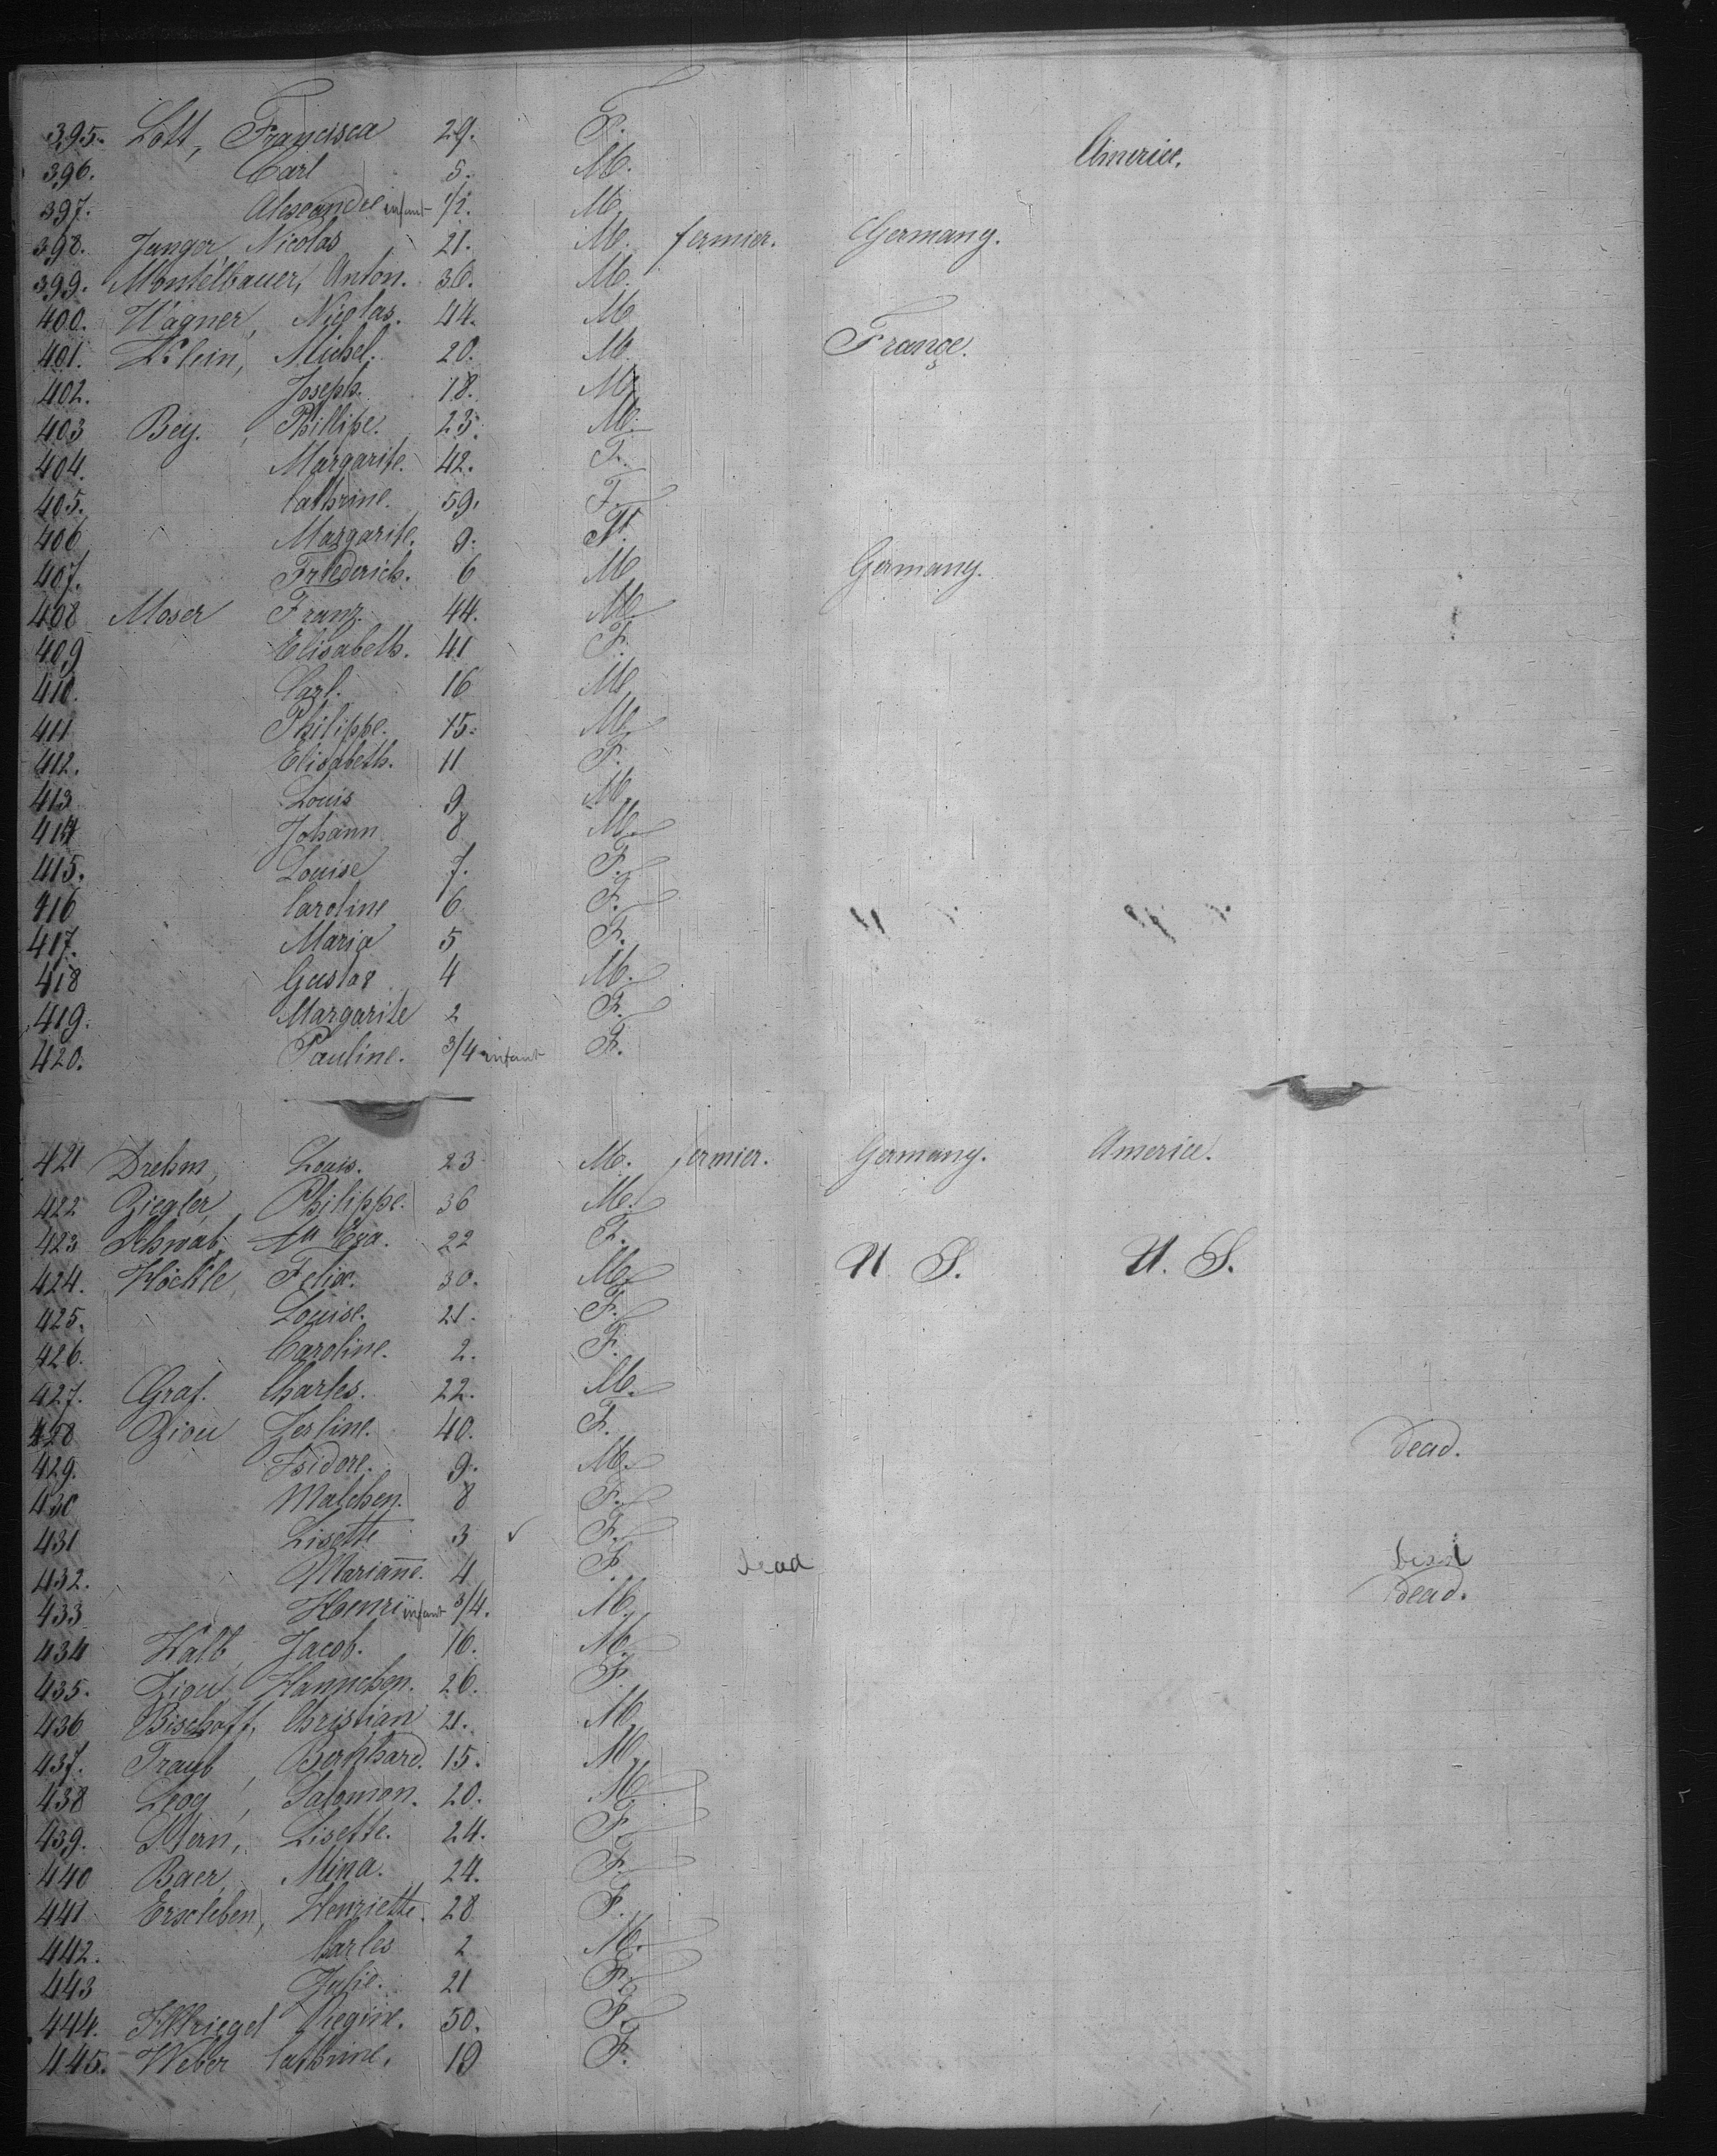 395. Lott, Francisca 29. F.
Americe.
396. Carl 5. M.
397. Alexandre infant 1/2. M.
398. Junger Nicolas 21. M. fermier. Germany.
399. Montelbauer, Anton. 36. M.
400. Wagner, Nicolas. 44. M
401. Klein, Michel. 20. M. France.
402. Joseph. 18. M.
403 Bey. Phillipe. 23. M.
404. Margarite. 42. F.
405. Cathrine. 59. F.
406 Margarite. 9. F.
407. Friederich. 6 M Germany.
408 Moser Franz. 44. M.
409 Elisabeth. 41 F.
410. Carl. 16 M
411 Philippe. 15. M.
412. Elisabeth. 11 F.
413 Louis 9 M.
414 Johann 8 M.
415. Louise 7. F.
416 Caroline 6 F.
417. Maria 5 F.
418 Gustav 4 M.
419. Margarite 2 F.
420. Pauline. 3/4 infant F.
421 Drehm, Louis. 23 M. fermier. Germany. Americe.
422 Ziegler, Philippe. 36 M.
423 Schwab, Eva. 22 F.
424. Köchle, Felix. 30. M. U. S. U. S.
425. Louise. 21. F.
426. Caroline. 2. F.
427. Graf. Charles. 22. M.
428 Zerline. 40. F. dead.
429. Isidore. 9. M.
430 Malchen. 8 F.
431 Lisette 3 F.
432. Marianne. 4 F. dead dead
433 Henri infant 3/4. M. dead.
434 Kalb, Jacob. 16. M.
435. Hannchen. 26. F.
436 Bischoff, Christian 21. M.
437. Traub, Bernhard. 15. M.
438 Levy, Salomon. 20. M.
439. Stern, Lisette. 24. F.
440 Baer, Mina. 24. F.
441 Ersleben, Henriette. 28 F.
442. Carles 2 M.
443 Julie. 21 F.
444. Regine. 50. F.
445. Weber Cathrine. 19 F.